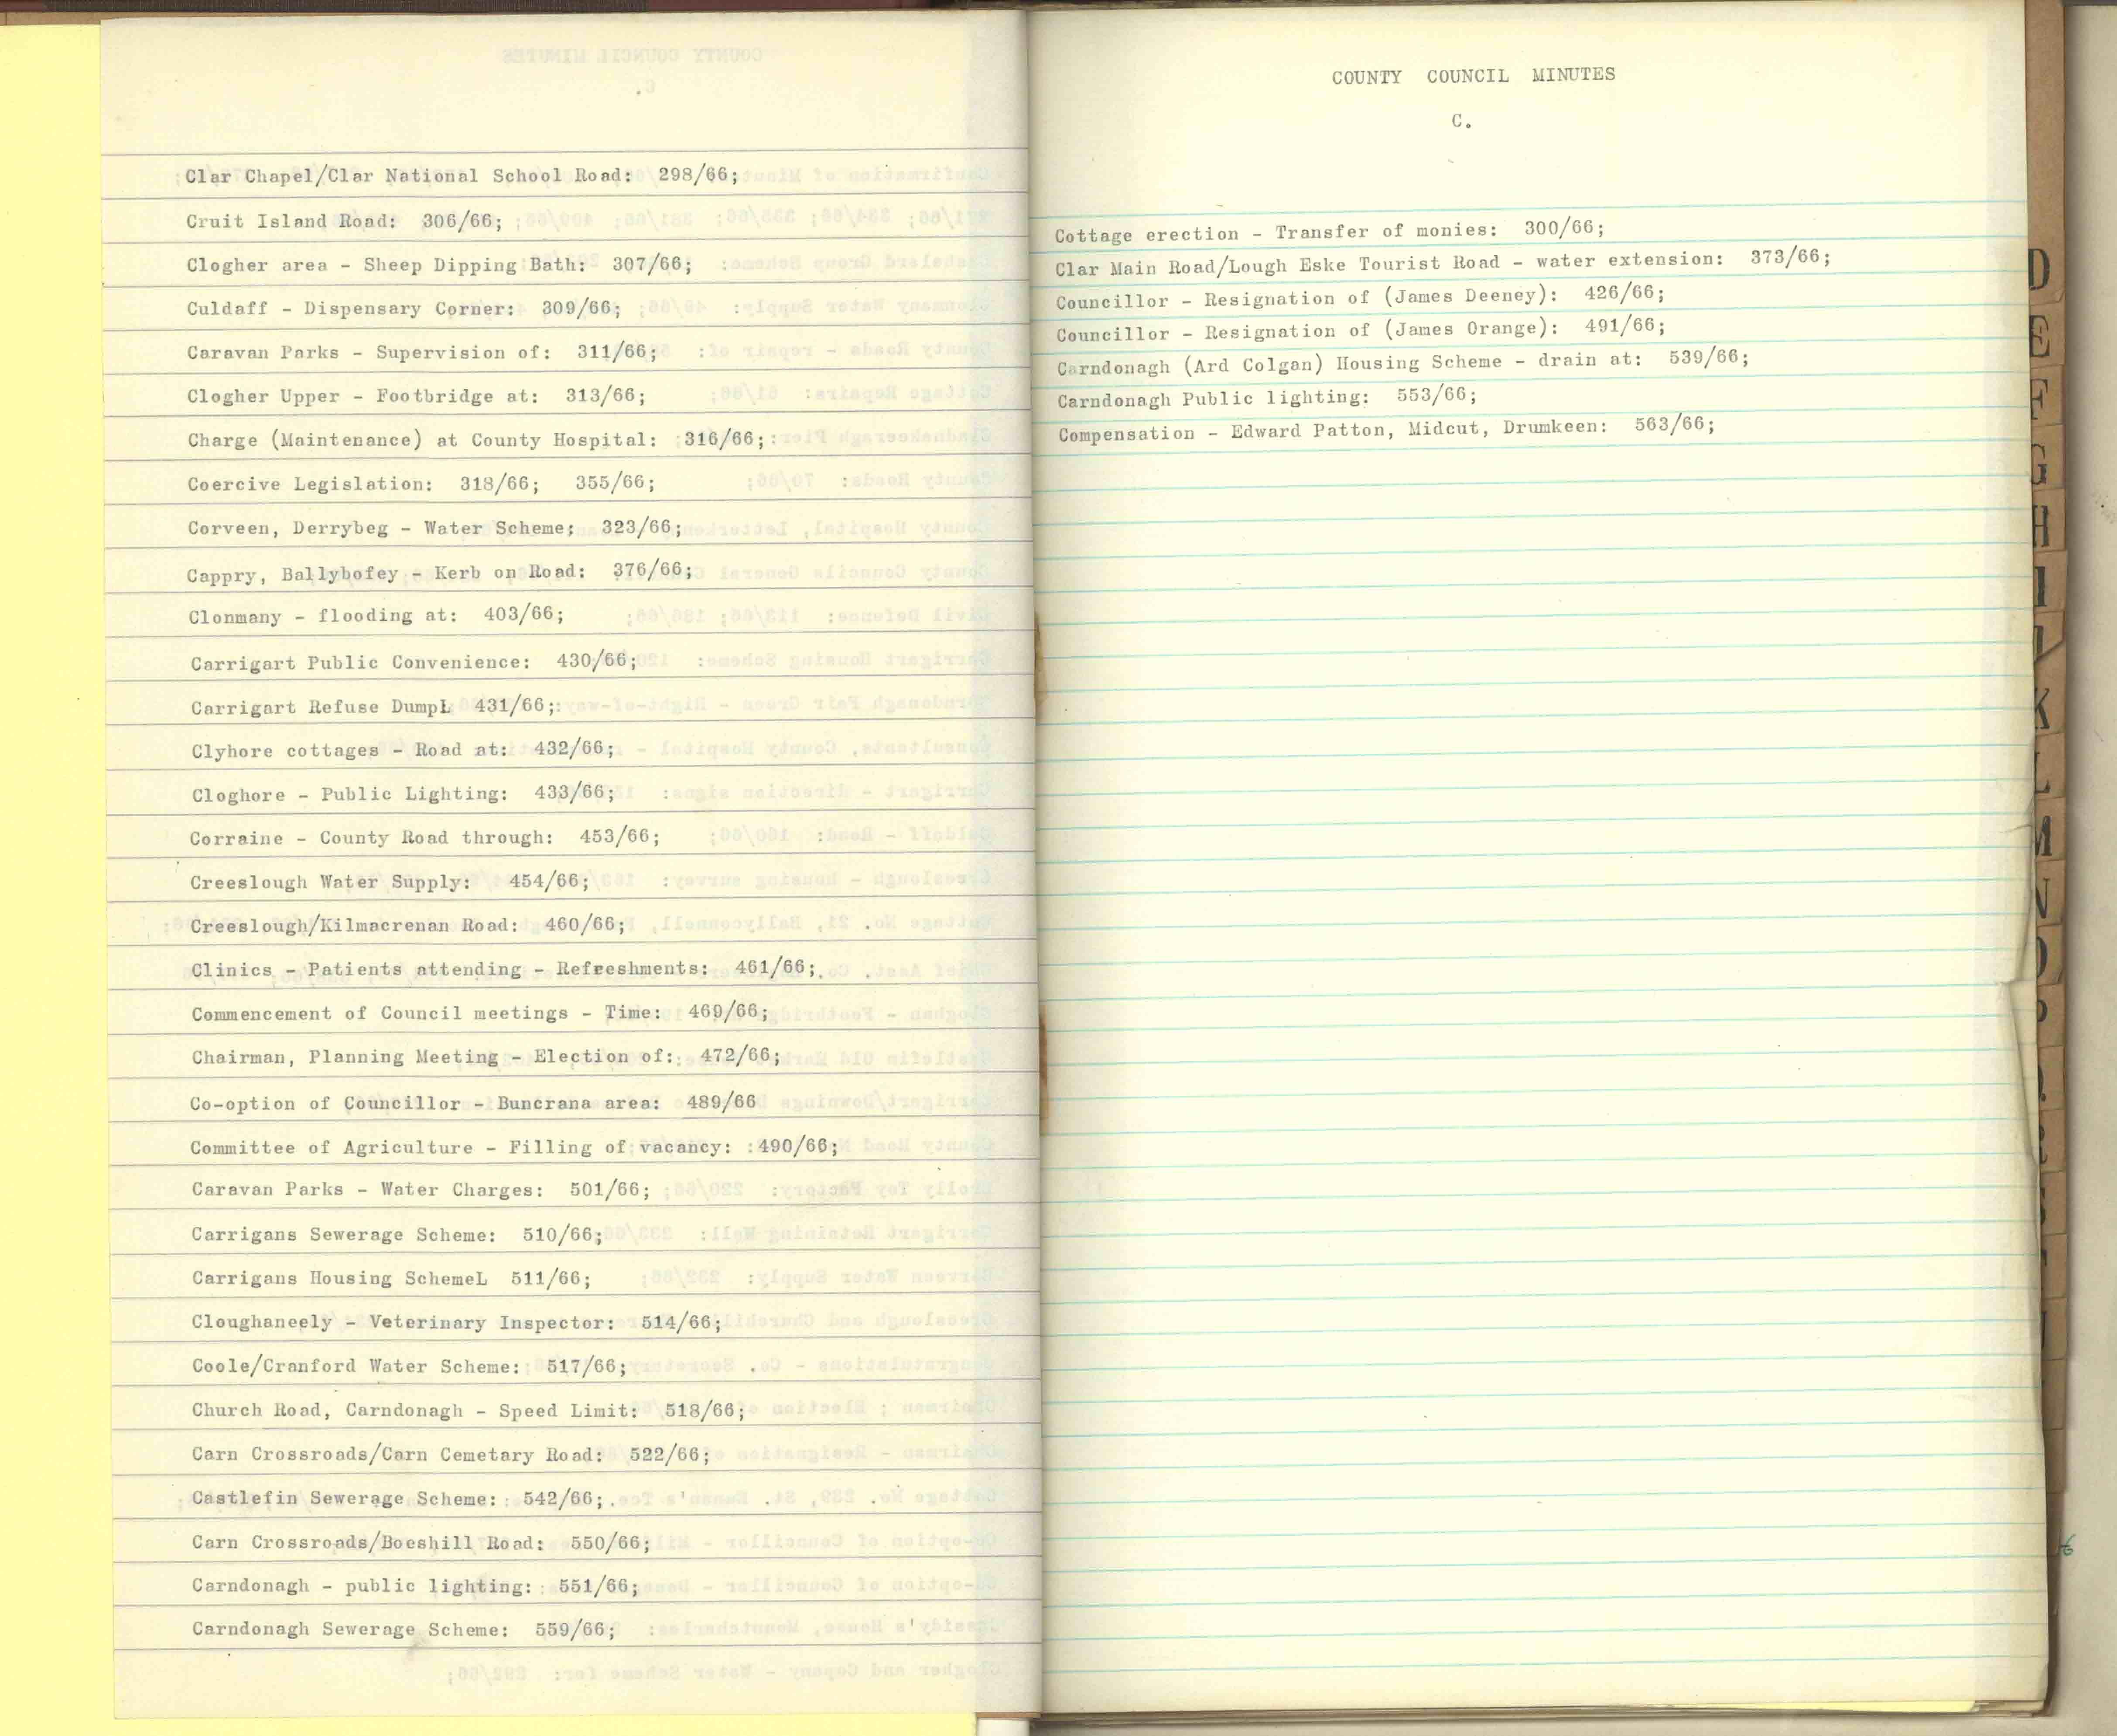 Clar Chapel/Clar National School Road: 298/66;
Cruit Island Road: 306/66;
Clogher area - Sheep Dipping Bath: 307/66;
Culdaff - Dispensary Corner: 309/66;
Caravan Parks - Supervision of: 311/66;
Clogher Upper - Footbridge at: 313/66;
Charge (Maintenance) at County Hospital: 316/66;
Coercive Legislation: 318/66; 355/66;
Corveen, Derrybeg - Water Scheme; 323/66;
Cappry, Ballybofey - Kerb on Road: 376/66;
Clonmany - flooding at: 403/66;
Carrigart Public Convenience: 430/66;
Carrigart Refuse DumpL 431/66;
Clyhore cottages - Road at: 432/66;
Cloghore - Public Lighting: 433/66;
Corraine - County Road through: 453/66;
Creeslough Water Supply: 454/66;
Creeslough/Kilmacrenan Road: 460/66;
Clinics - Patients attending - Refreshments: 461/66;
Commencement of Council meetings - Time: 469/66;
Chairman, Planning Meeting - Election of: 472/66;
Co-option of Councillor - Buncrana area: 489/66
Committee of Agriculture - Filling of vacancy: 490/66;
Caravan Parks - Water Charges: 501/66;
Carrigans Sewerage Scheme: 510/66;
Carrigans Housing SchemeL 511/66;
Cloughaneely - Veterinary Inspector: 514/66;
Coole/Cranford Water Scheme: 517/66;
Church Road, Carndonagh - Speed Limit: 518/66;
Carn Crossroads/Carn Cemetary Road: 522/66;
Castlefin Sewerage Scheme: 542/66;
Carn Crossroads/Boeshill Road: 550/66;
Carndonagh - public lighting: 551/66;
Carndonagh Sewerage Scheme: 559/66;
COUNTY COUNCIL MINUTES
C.
Cottage erection - Transfer of monies: 300/66;
Clar Main Road/Lough Eske Tourist Road - water extension: 373/66;
Councillor - Resignation of (James Deeney): 426/66;
Councillor - Resignation of (James Orange): 491/66;
Carndonagh (Ard Colgan) Housing Scheme - drain at: 539/66;
Carndonagh Public lighting: 553/66;
Compensation - Edward Patton, Midcut, Drumkeen: 563/66;
D
E
F
G
H
I
J
K
L
M
N
O
P